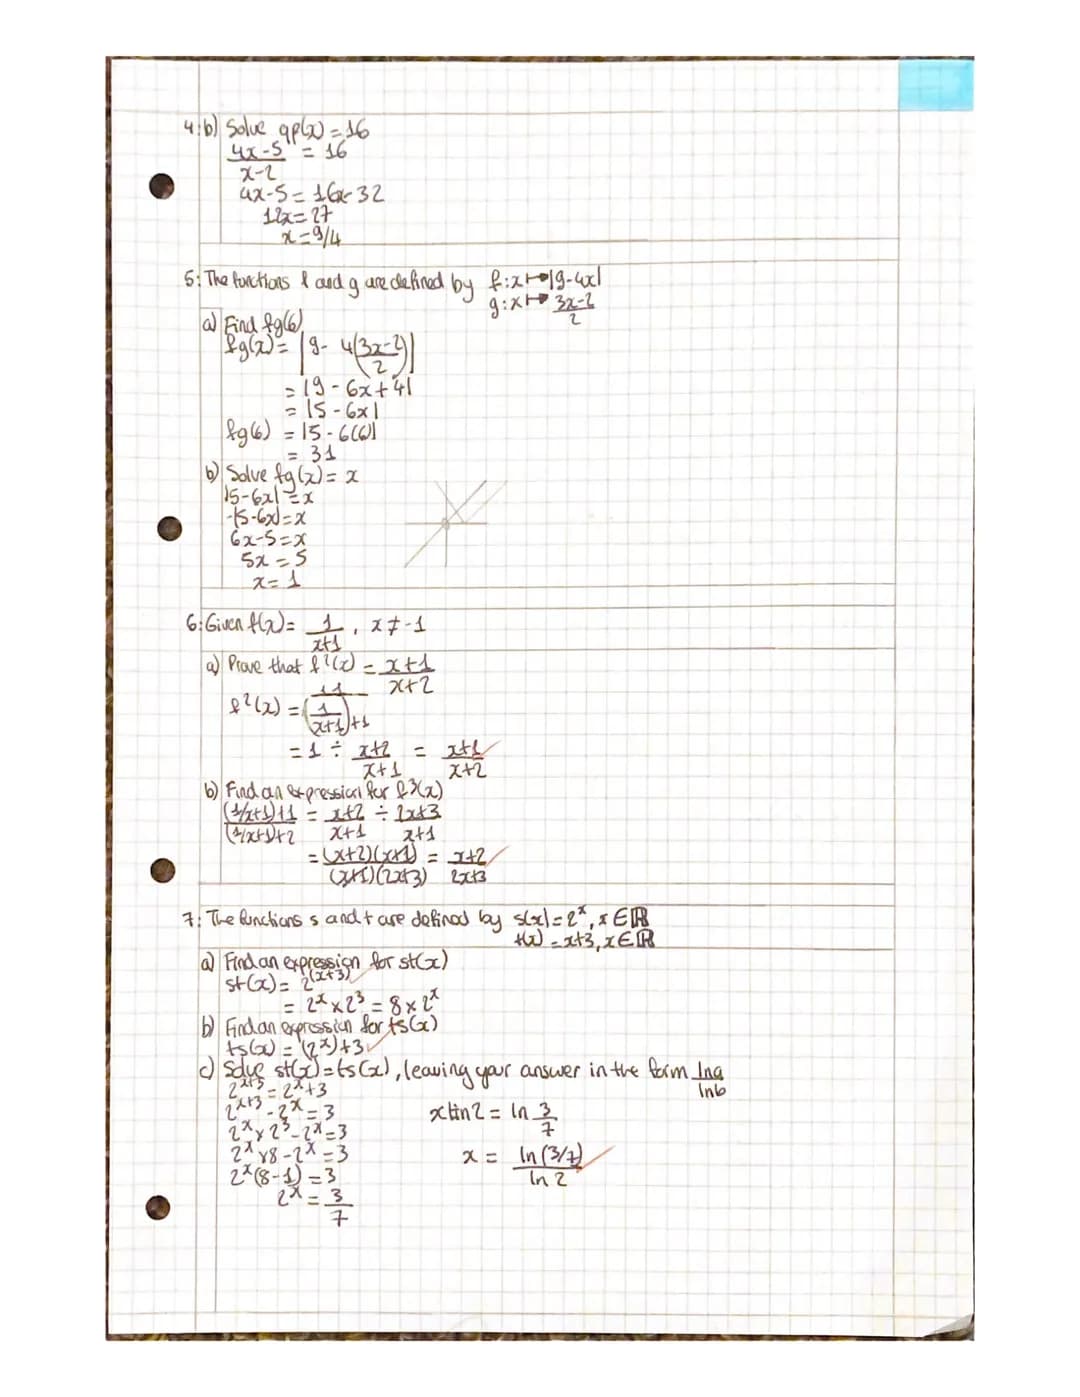 4: b) Solve qp(x) = 16
(4x-5)/(x-2) = 16
4x-5 = 16x-32
12x = 27
x = 9/4
5: The functions f and g are defined by f: x ↦ |9-4x|
g: x ↦ (3x-2)/2
a) Find fg(6)
fg(x) = |9 - 4((3x-2)/2)|
= |9 - 6x + 4|
= |5 - 6x|
fg(6) = |5 - 6(6)|
= 31
b) Solve fg(x) = x
|5-6x| = x
-(5-6x) = x
6x-5 = x
5x = 5
x = 1
6: Given f(x) = 1/(x+1), x ≠ -1
a) Prove that f²(x) = (x+1)/(x+2)
f²(x) = 1/((1/(x+1))+1)
= 1 ÷ (x+2)/(x+1) = (x+1)/(x+2)
b) Find an expression for f³(x)
((1/x+1)+1)/((1/x+1)+2) = (x+2)/(x+1) ÷ (2x+3)/(x+1)
= (x+2)(x+1)/(x+1)(2x+3) = (x+2)/(2x+3)
7: The functions s and t are defined by s(x) = 2ˣ, x ∈ ℝ
t(x) = x+3, x ∈ ℝ
a) Find an expression for st(x)
st(x) = 2^(x+3)
= 2ˣ × 2³ = 8 × 2ˣ
b) Find an expression for ts(x)
ts(x) = (2ˣ)+3
c) Solve st(x) = ts(x), leaving your answer in the form lna/lnb
2^(x+3) = 2ˣ+3
2^(x+3) - 2ˣ = 3
2ˣ × 2³ - 2ˣ = 3
2ˣ × 8 - 2ˣ = 3
2ˣ(8-1) = 3
2ˣ = 3/7
x ln 2 = ln 3/7
x = ln(3/7)/ln 2